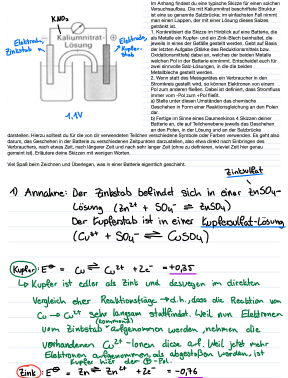 Im Anfang findest du eine typische Skizze für einen solchen
Versuchsaufbau. Die mit Kaliumnitrat beschriftete Struktur
ist eine so genannte Salzbrücke, im einfachsten Fall nimmt
man einen Lappen, der mit einer Lösung dieses Salzes
getränkt ist.
1. Konkretisiert die Skizze im Hinblick auf eine Batterie, die
als Metalle ein Kupfer- und ein Zink-Blech beinhaltet, die
jeweils in eines der Gefäße gestellt werden. Gebt auf Basis
der letzten Aufgabe (Stärke des Reduktionsmittels bzw.
Oxidationsmittels) dabei an, welches der beiden Metalle
welchen Pol in der Batterie einnimmt. Entscheidet euch für
zwei sinnvolle Salz-Lösungen, in die die beiden
Metallbleche gestellt werden.
2. Wenn statt des Messgerätes ein Verbraucher in den
Stromkreis gestellt wird, so können Elektronen von einem
Pol zum anderen fließen. Dabei ist definiert, dass Stromfluss
immer vom -Pol zum +Pol fließt.
a) Stelle unter diesen Umständen das chemische
Geschehen in Form einer Reaktionsgleichung an den Polen
dar.
b) Fertige im Sinne eines Daumenkinos 4 Skizzen deiner
Batterie an, die auf Teilchenebene jeweils das Geschehen
an den Polen, in der Lösung und an der Salzbrücke
KNO₃
Kaliumnitrat-
Lösung
Elektrode,
Zinkstab
Elektrode,
Kupfer-
stab
1,1V
darstellen. Hierzu solltest du für die von dir verwendeten Teilchen verschiedene Symbole oder Farben verwenden. Es geht also
darum, das Geschehen in der Batterie zu verschiedenen Zeitpunkten darzustellen, also etwa direkt nach Einbringen des
Verbrauchers, nach etwas Zeit, nach längerer Zeit und nach sehr langer Zeit (ohne zu definieren, wieviel Zeit hier genau
gemeint ist). Erläutere deine Skizzen mit wenigen Worten.
Viel Spaß beim Zeichnen und Überlegen, was in einer Batterie eigentlich geschieht.
Zinksulfat
1) Annahme: Der Zinkstab befindet sich in einer ZnSO₄-
Lösung (Zn²⁺ + SO₄⁻ ⇌ ZnSO₄)
Der Kupferstab ist in einer Kupfersulfat-Lösung
(Cu²⁺ + SO₄⁻ ⇌ CuSO₄)
Kupfer: E⁰ = Cu ⇌ Cu²⁺ + 2e⁻ = +0,35
↳ Kupfer ist edler als Zink und deswegen im direkten
Vergleich eher Reaktionsträge → d.h., dass die Reaktion von
Cu → Cu²⁺ sehr langsam stattfindet. Weil nun Elektronen
vom Zinkstab (kommend) aufgenommen werden, nehmen die
vorhandenen Cu²⁺-Ionen diese auf. Weil jetzt mehr
Elektronen aufgenommen, als abgestoßen werden, ist
Kupfer hier der ⊕-Pol.
Zink: E⁰ = Zn ⇌ Zn²⁺ + 2e⁻ = -0,76